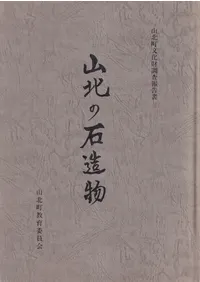 山北町文化財調査報告書
山北の石造物
山北町教育委員会